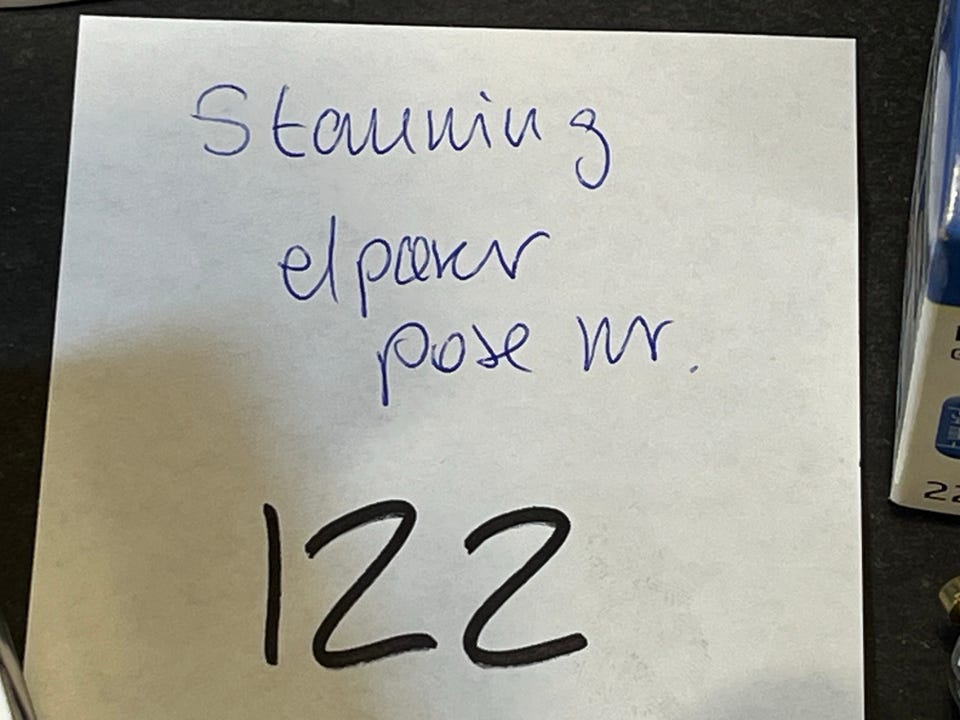 Stauning
elpærer
pose nr.
122